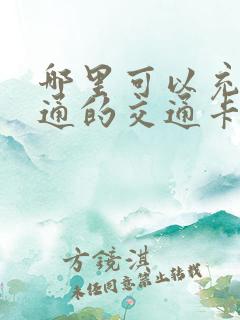 哪里可以充
通的交通卡
方镜淇
未经同意禁止转载